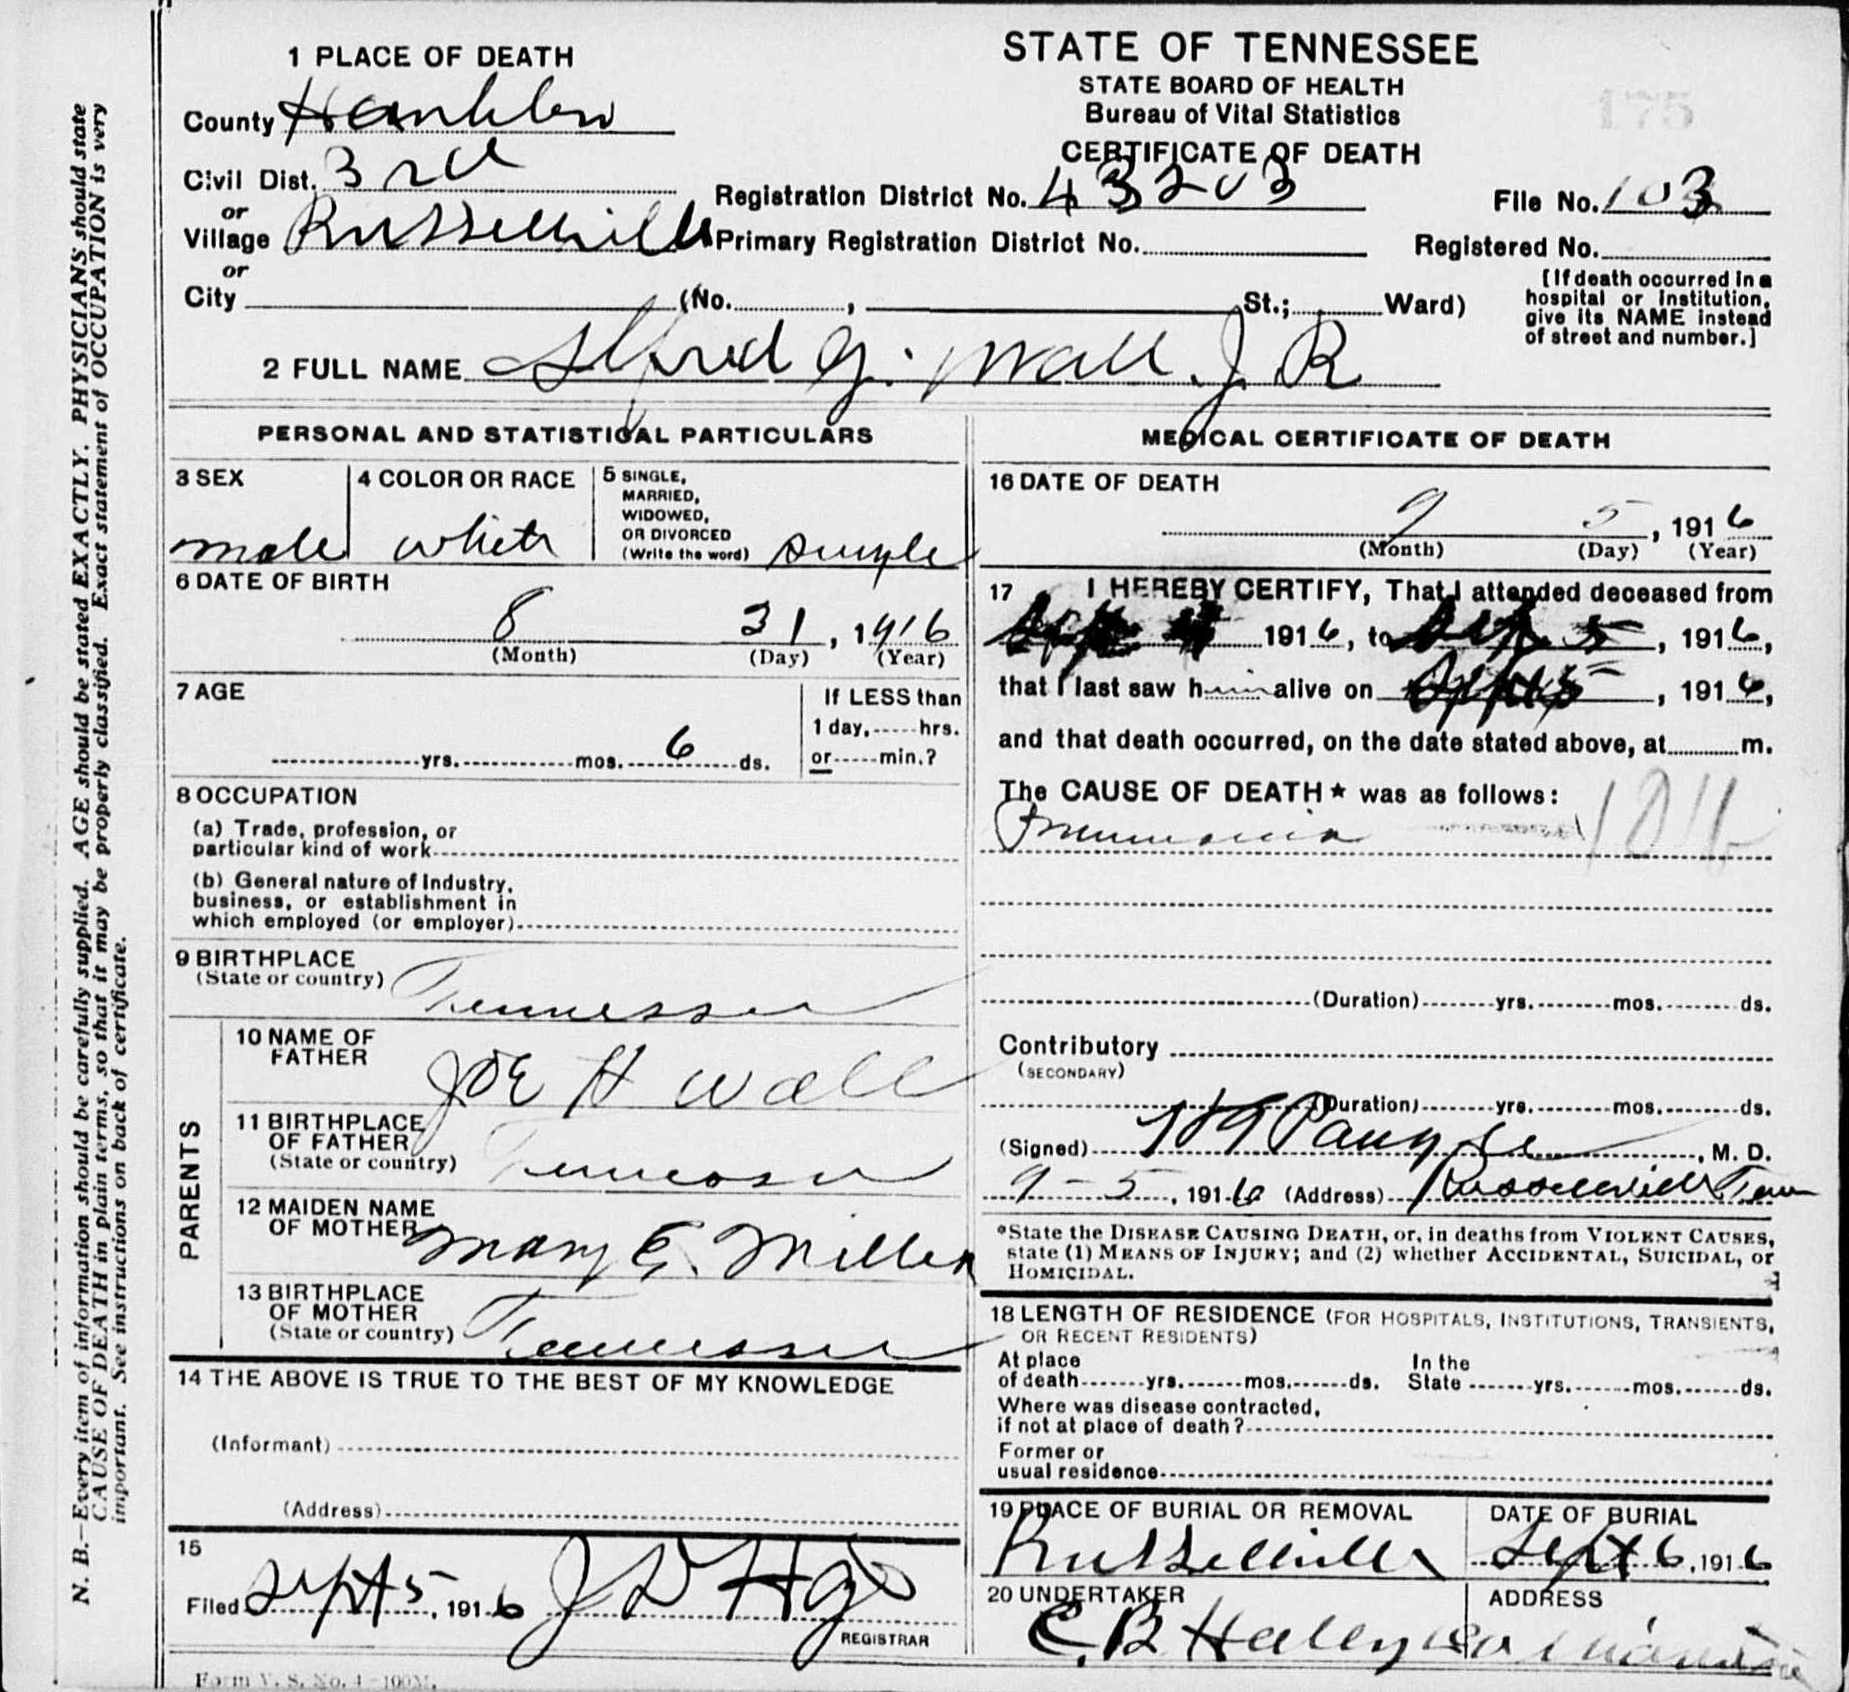 STATE OF TENNESSEE
STATE BOARD OF HEALTH
Bureau of Vital Statistics
CERTIFICATE OF DEATH
175
1 PLACE OF DEATH
County Hamblen
Civil Dist. 3rd
or
Village Russellville
or
City (No. , St.; Ward)
Registration District No. 43203 File No. 103
Primary Registration District No. Registered No.
[If death occurred in a
hospital or institution,
give its NAME instead
of street and number.]
2 FULL NAME Alfred G. Wall. J. R
PERSONAL AND STATISTICAL PARTICULARS
3 SEX
male
4 COLOR OR RACE
white
5 SINGLE,
MARRIED,
WIDOWED,
OR DIVORCED
(Write the word) single
6 DATE OF BIRTH
8 31, 1916
(Month) (Day) (Year)
7 AGE
yrs. mos. 6 ds.
If LESS than
1 day, hrs.
or min.?
8 OCCUPATION
(a) Trade, profession, or
particular kind of work
(b) General nature of industry,
business, or establishment in
which employed (or employer)
9 BIRTHPLACE
(State or country) Tennessee
PARENTS
10 NAME OF
FATHER JOE H Wall
11 BIRTHPLACE
OF FATHER
(State or country) Tennessee
12 MAIDEN NAME
OF MOTHER Mary E. Miller
13 BIRTHPLACE
OF MOTHER
(State or country) Tennessee
14 THE ABOVE IS TRUE TO THE BEST OF MY KNOWLEDGE
(Informant)
(Address)
15
Filed Sept 5, 1916 J D
REGISTRAR
Form V. S. No. 4-100M.
MEDICAL CERTIFICATE OF DEATH
16 DATE OF DEATH
9 5, 1916
(Month) (Day) (Year)
17 I HEREBY CERTIFY, That I attended deceased from
Sept 4 1916, to Sep 5, 1916,
that I last saw him alive on Sept 5, 1916,
and that death occurred, on the date stated above, at m.
The CAUSE OF DEATH* was as follows:
Pneumonia
(Duration) yrs. mos. ds.
Contributory
(SECONDARY)
(Duration) yrs. mos. ds.
(Signed) , M. D.
9-5, 1916 (Address) Russellville Tenn
*State the DISEASE CAUSING DEATH, or, in deaths from VIOLENT CAUSES,
state (1) MEANS OF INJURY; and (2) whether ACCIDENTAL, SUICIDAL, or
HOMICIDAL.
18 LENGTH OF RESIDENCE (FOR HOSPITALS, INSTITUTIONS, TRANSIENTS,
OR RECENT RESIDENTS)
At place
of death yrs. mos. ds.
In the
State yrs. mos. ds.
Where was disease contracted,
if not at place of death?
Former or
usual residence
19 PLACE OF BURIAL OR REMOVAL
Russellville
DATE OF BURIAL
Sept 6, 1916
20 UNDERTAKER
C. B Haley
ADDRESS
N. B.—Every item of information should be carefully supplied. AGE should be stated EXACTLY. PHYSICIANS should state
CAUSE OF DEATH in plain terms, so that it may be properly classified. Exact statement of OCCUPATION is very
important. See instructions on back of certificate.